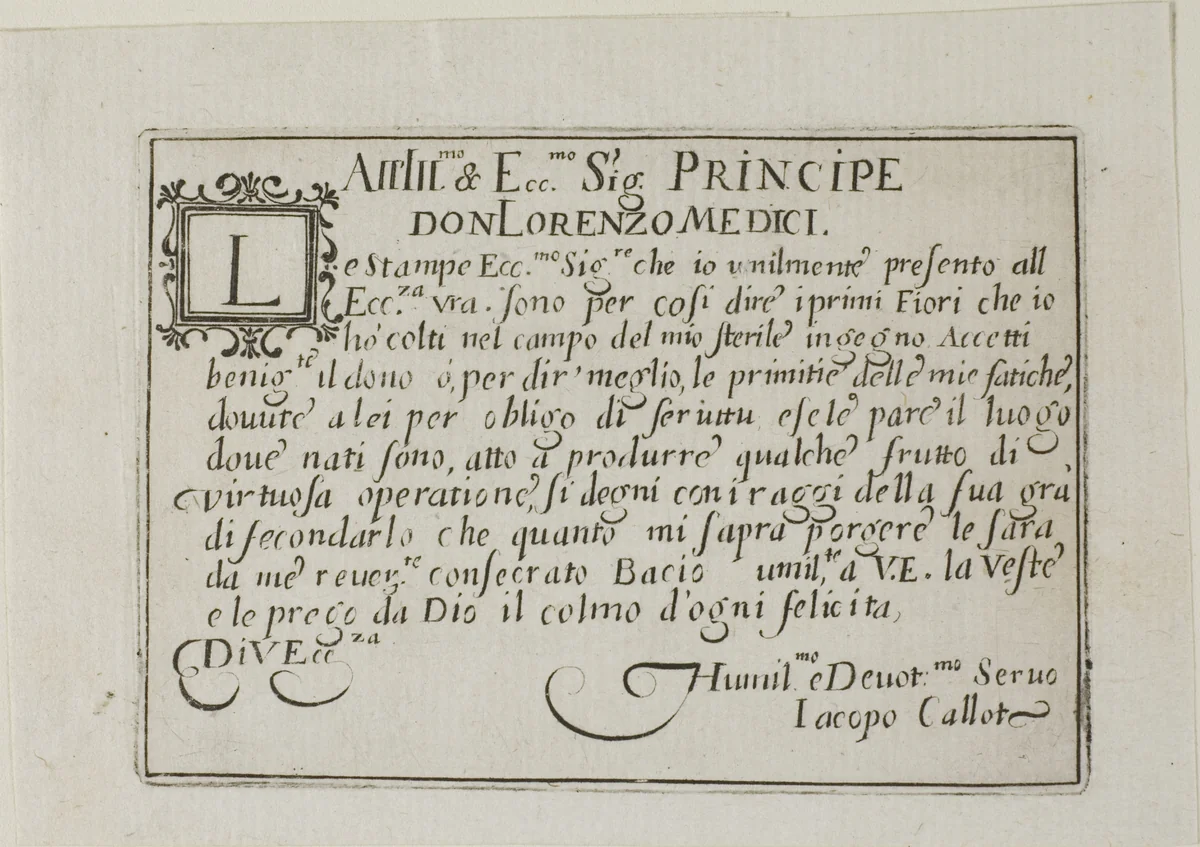 All Ill.mo & Ecc.mo Sig.r PRINCIPE
DON LORENZO MEDICI.
Le Stampe Ecc.mo Sig.re che io vmilmente presento all
Ecc.za vra. sono per cosi dire i primi Fiori che io
hò colti nel campo del mio sterile ingegno Accetti
benig.te il dono ó, per dir' meglio, le primitie delle mie fatiche,
douute a lei per obligo di seruitu e se le pare il luogo
doue nati sono, atto a produrre qualche frutto di
virtuosa operatione, si degni con i raggi della sua gra
di secondarlo che quanto mi sapra porgere le sara
da me reuer.te consecrato Bacio umil.te a V.E. la Veste
e le prego da Dio il colmo d'ogni felicita,
Di V Ecc.za
Humil.mo e Deuot.mo Seruo
Iacopo Callot